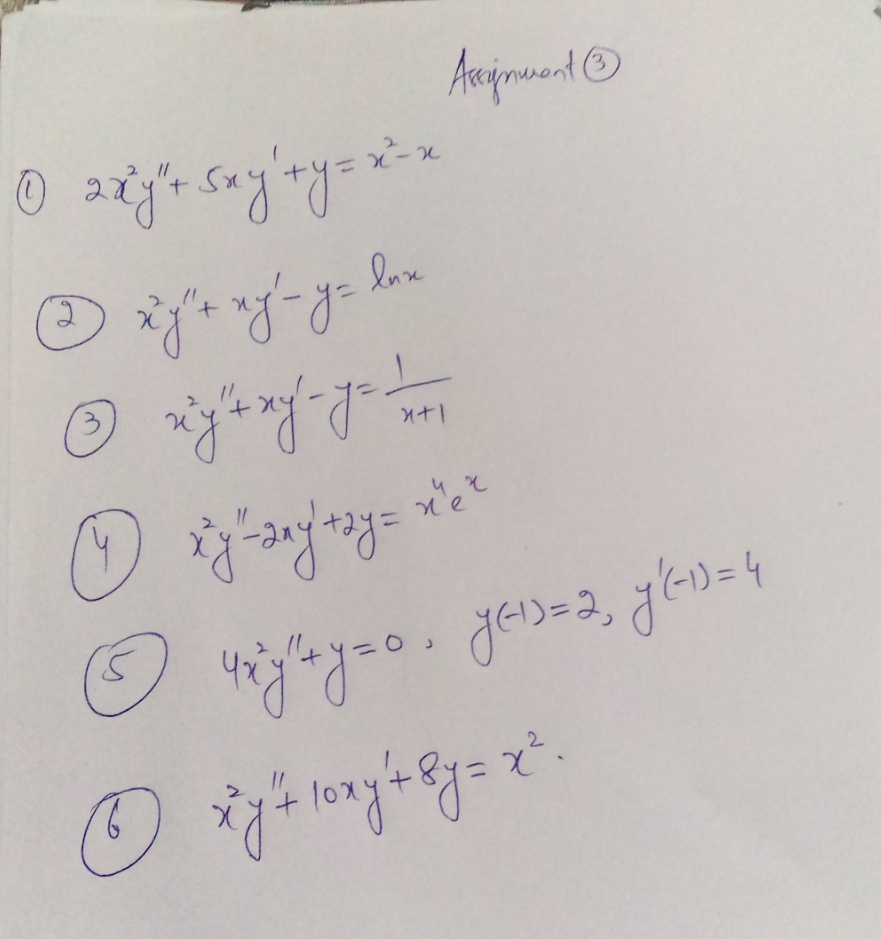 Assignment ③
① 2x²y'' + 5xy' + y = x² - x
② x²y'' + xy' - y = ln x
③ x²y'' + xy' - y = 1/(x+1)
④ x²y'' - 2xy' + 2y = x⁴eˣ
⑤ 4x²y'' + y = 0, y(-1) = 2, y'(-1) = 4
⑥ x²y'' + 10xy' + 8y = x².